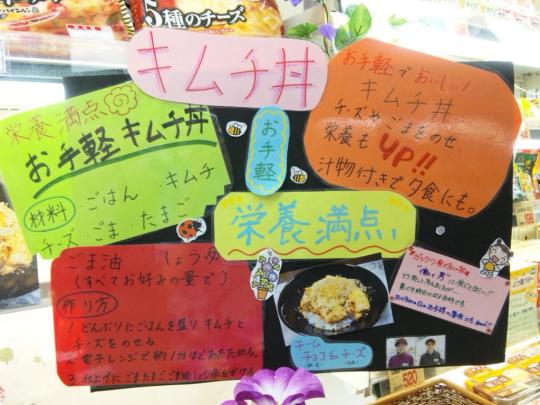 5種のチーズ
キムチ丼
栄養満点
お手軽キムチ丼
材料
・ごはん ・キムチ
・チーズ ・ごま ・たまご
ごま油 しょうゆ
(すべてお好みの量で)
作り方
1. どんぶりにごはんを盛り キムチと
チーズをのせる。
2. 電子レンジで約1分ほどあたためる。
3. 仕上げにごま たまご ごま油 しょうゆをかける。
お手軽
栄養満点!
お手軽でおいしい!
キムチ丼
チーズやごまをのせ、
栄養も
UP!!
汁物付きで夕食にも。
チーム
チョコ&チーズ
520
598